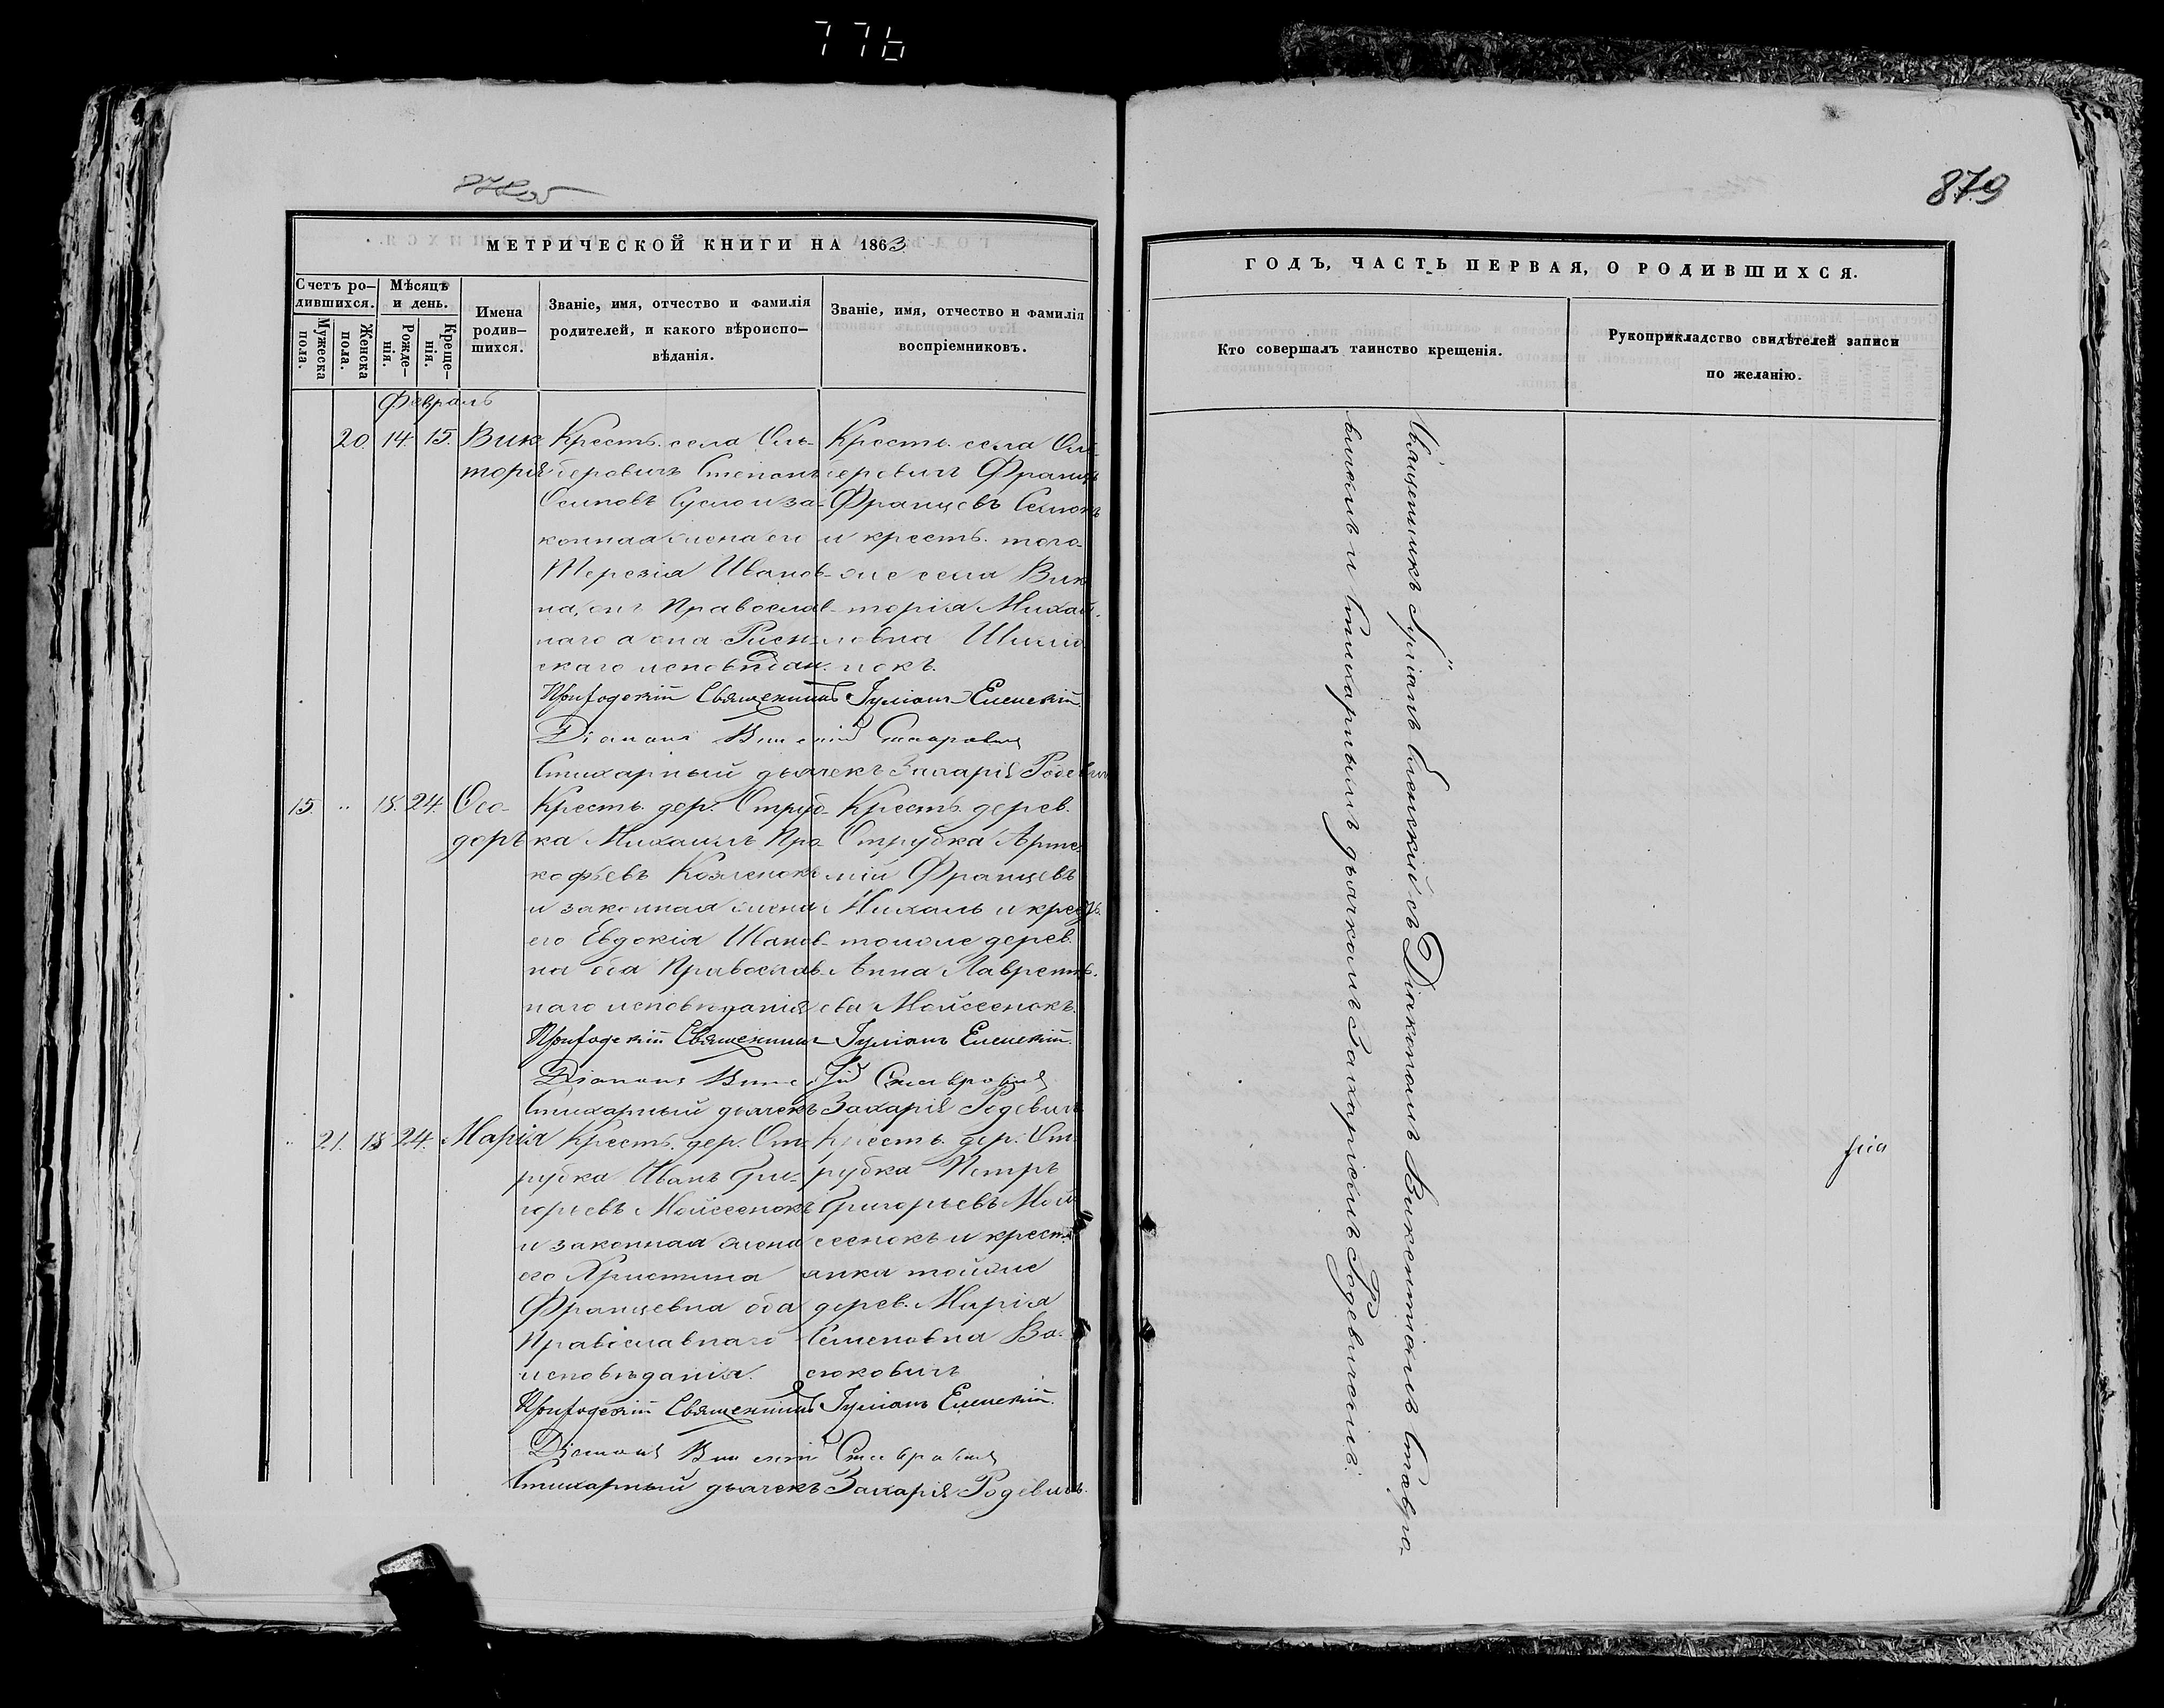 776
879
МЕТРИЧЕСКОЙ КНИГИ НА 1863
Счетъ ро-
дившихся.
Мѣсяцъ
и день.
Мужеска
пола.
Женска
пола.
Рожде-
нія.
Креще-
нія.
Имена
родив-
шихся.
Званіе, имя, отчество и фамилія
родителей, и какого вѣроиспо-
вѣданія.
Званіе, имя, отчество и фамилія
воспріемниковъ.
Февраль
20. 14. 15. Вик-
торія
Кресть. села Оль-
геровичъ Степанъ
Осиповъ Сусло и за-
конная жена его
Терезія Иванов-
на, онъ Православ-
наго а она Римс-
каго исповѣдан.
Кресть. села Оль-
геровичъ Францъ
Францевъ
и кресть. того-
же села Вик-
торія Михай-
ловна
нокъ.
Приходскій Священникъ Іуліанъ Еленскій.
Діаконъ Викентій Ставровичъ
Стихарный дьячекъ Захарія Родевичъ
15. .. 18. 24. Ѳео-
доръ
Кресть. дер. Отруб-
ка Михаилъ Про-
кофьевъ Козленокъ
и законная жена
его Евдокія Иванов-
на оба Православ-
наго исповѣданія
Кресть. дерев.
Отрубка Арте-
мій Францевъ
и кресть.
тойже дерев.
Анна Лаврентъ-
ева Мойсеенокъ.
Приходскій Священникъ Іуліанъ Еленскій.
Діаконъ Викентій Ставровичъ
Стихарный дьячекъ Захарія Родевичъ
.. 21. 18. 24. Марія
Кресть. дер. От-
рубка Иванъ Гри-
горьевъ Мойсеенокъ
и законная жена
его Христина
Францевна оба
Православнаго
исповѣданія.
Кресть. дер. От-
рубка Петръ
Григорьевъ Мой-
сеенокъ и крестъ-
янка тойже
дерев. Марія
Семеновна Ва-
сюковичъ
Приходскій Священникъ Іуліанъ Еленскій.
Діаконъ Викентій Ставровичъ
Стихарный дьячекъ Захарія Родевичъ.
ГОДЪ, ЧАСТЬ ПЕРВАЯ, О РОДИВШИХСЯ.
Кто совершалъ таинство крещенія.
Рукоприкладство свидѣтелей записи
по желанію.
Священникъ Іуліанъ Еленскій съ Діакономъ Викентіемъ Ставро-
вичемъ и Стихарнымъ дьячкомъ Захаріемъ Родевичемъ.